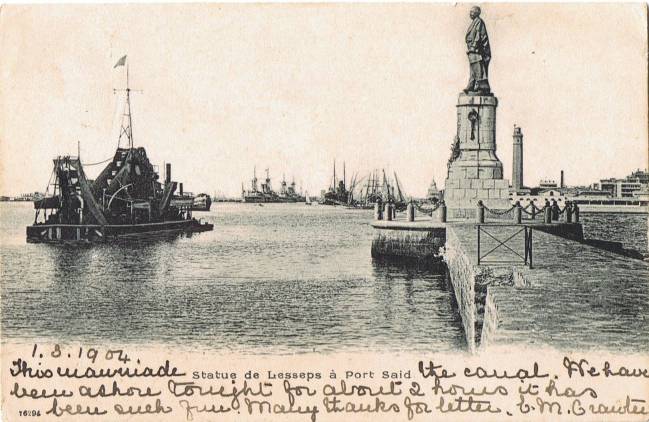 1.3.1904
This man made Statue de Lesseps à Port Said the canal. We have
been ashore tonight for about 2 hours it has
been such fun. Many thanks for letter. E.M.
16294